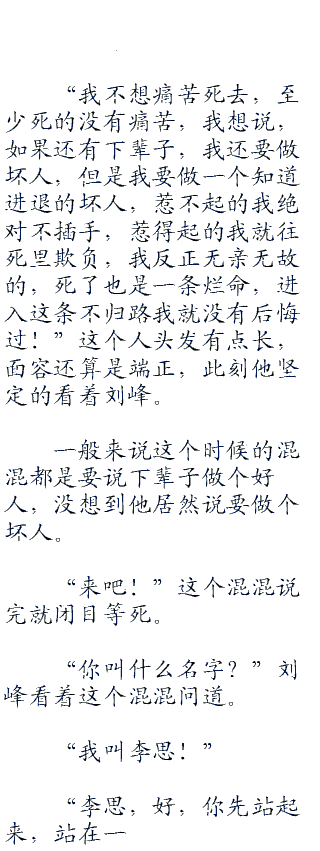 “我不想痛苦死去，至
少死的没有痛苦，我想说，
如果还有下辈子，我还要做
坏人，但是我要做一个知道
进退的坏人，惹不起的我绝
对不插手，惹得起的我就往
死里欺负，我反正无亲无故
的，死了也是一条烂命，进
入这条不归路我就没有后悔
过！”这个人头发有点长，
面容还算是端正，此刻他坚
定的看着刘峰。
一般来说这个时候的混
混都是要说下辈子做个好
人，没想到他居然说要做个
坏人。
“来吧！”这个混混说
完就闭目等死。
“你叫什么名字？”刘
峰看着这个混混问道。
“我叫李思！”
“李思，好，你先站起
来，站在一